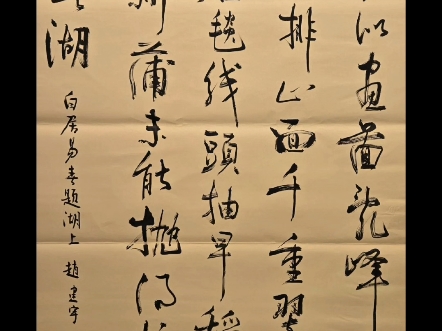 似畫圖乱峰
排山面千重翠
毯线頭抽早稻
新蒲未能抛得
此湖
白居易春题湖上 趙建